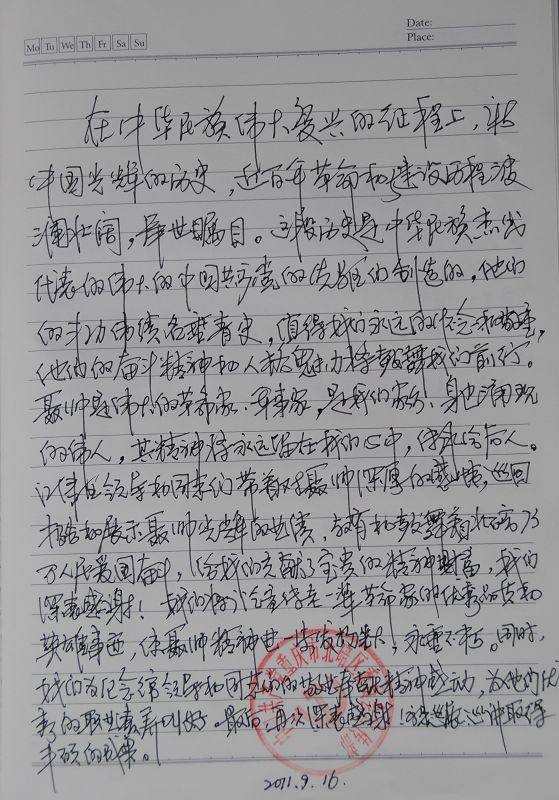 Date:
Place:
Mo Tu We Th Fr Sa Su
在中华民族伟大复兴的征程上，新
中国光辉的历史，近百年革命和建设历程波
澜壮阔，举世瞩目。这段历史是中华民族杰出
代表的伟大的中国共产党的先驱们创造的，他们
的丰功伟绩名垂青史，值得我们永远的纪念和敬重，
他们的奋斗精神和人格魅力将鼓舞我们前行。
聂帅是伟大的革命家、军事家，是我们家乡、身边涌现
的伟人，其精神将永远留在我们心中，传承给后人。
纪念馆领导和同志们带着对聂帅深厚的感情，巡回
的展示聂帅光辉的业绩，教育和鼓舞着北碚
万人民爱国奋斗，给我们贡献了宝贵的精神财富，我们
深表感谢！我们将学习老一辈革命家的优秀品质和
英雄事迹，使聂帅精神世发扬，永垂不朽。同时，
我们为纪念馆领导和同志们的敬业奉献精神感动，为他们优
秀的职业素养叫好。最后，再次深表感谢！巡取得
丰硕的成果。
重庆市北碚区
2011.9.16.